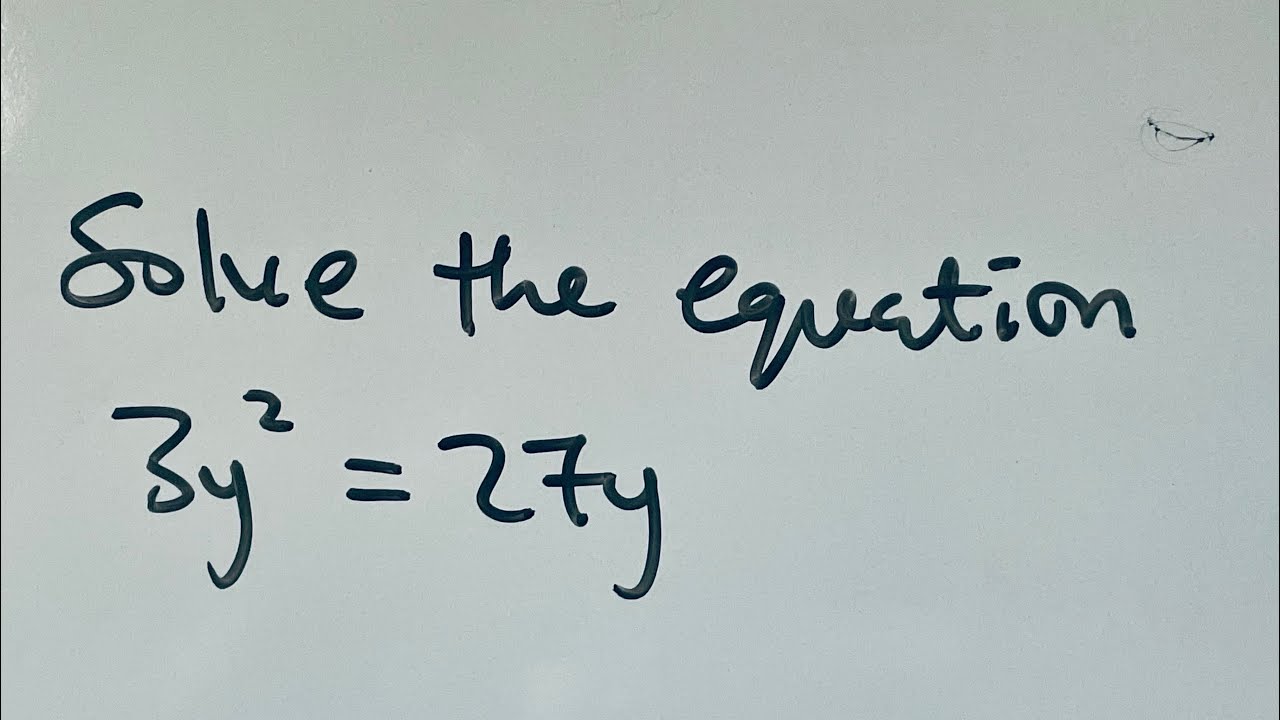 Solve the equation
3y² = 27y